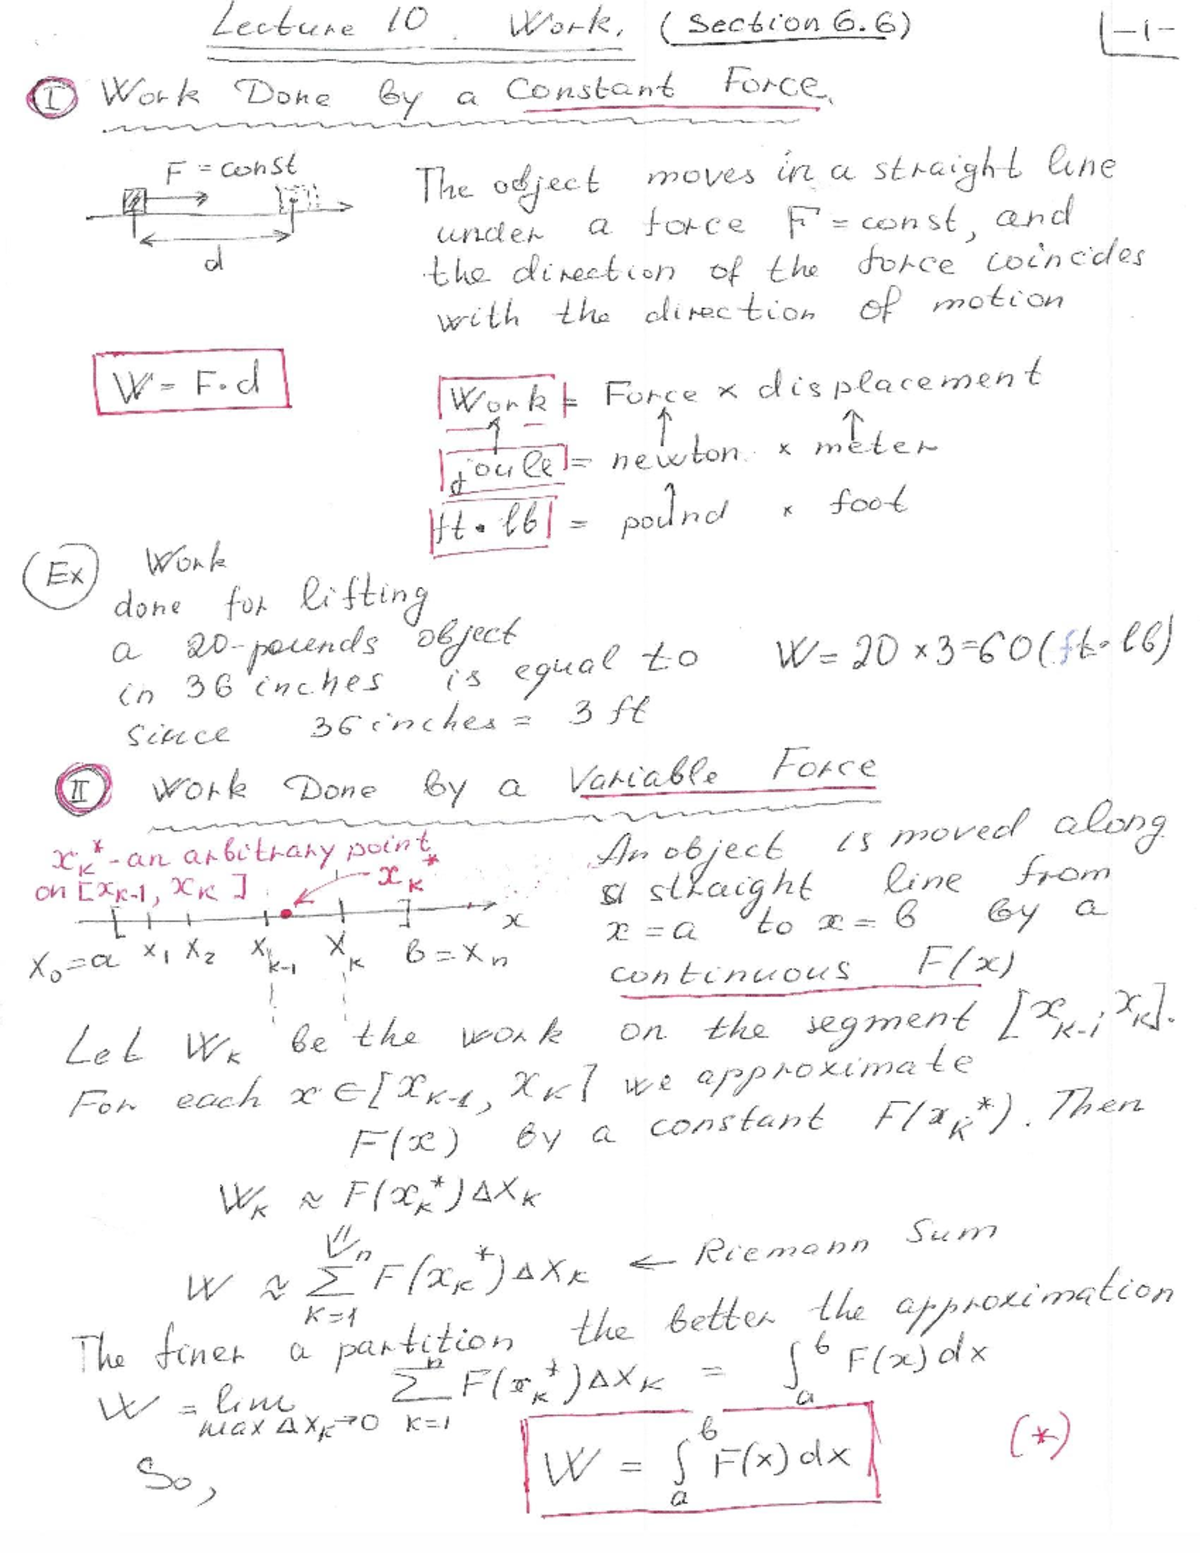 Lecture 10. Work. (Section 6.6)
-1-
I Work Done by a Constant Force.
F = const
d
The object moves in a straight line
under a force F = const, and
the direction of the force coincides
with the direction of motion
W = F·d
Work = Force × displacement
joule = newton × meter
ft·lb = pound × foot
Ex Work
done for lifting
a 20-pounds object
in 36 inches is equal to W = 20 × 3 = 60 (ft·lb)
since 36 inches = 3 ft
II Work Done by a Variable Force
x_k^* - an arbitrary point
on [x_{k-1}, x_k]
x_k^*
x
x_0 = a x_1 x_2 x_{k-1} x_k b = x_n
An object is moved along
a straight line from
x = a to x = b by a
continuous F(x)
Let W_k be the work on the segment [x_{k-1}, x_k].
For each x ∈ [x_{k-1}, x_k] we approximate
F(x) by a constant F(x_k^*). Then
W_k ≈ F(x_k^*) Δx_k
⇓
W ≈ ∑_{k=1}^n F(x_k^*) Δx_k ← Riemann Sum
The finer a partition the better the approximation
W = lim_{max Δx_k→0} ∑_{k=1}^n F(x_k^*) Δx_k = ∫_a^b F(x) dx
So, W = ∫_a^b F(x) dx (*)